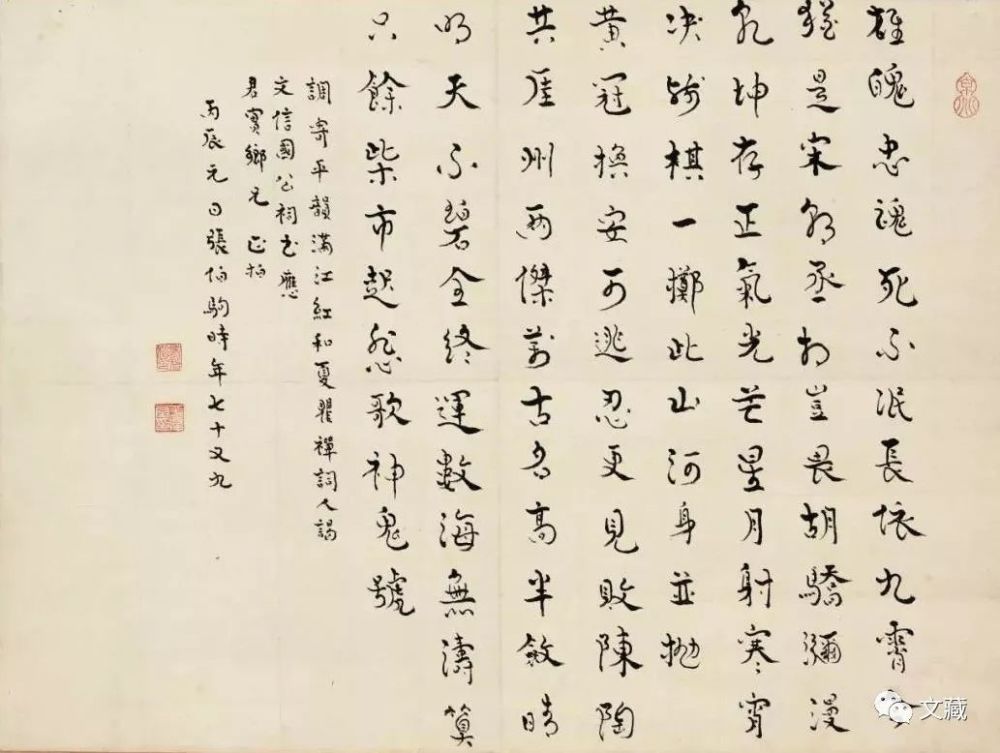 雄魄忠魂死不泯長懷九霄
猶是宋朝丞相豈畏胡驕彌漫
乾坤存正氣光芒星月射寒宵
决殘棋一擲此山河身並抛
黃冠換安可逃忍更見敗陳陶
共厓州兩傑萬古名高半斂晴
明天不碧全終運數海無濤算
只餘柴市起悲歌神鬼號
調寄平韻滿江紅和夏瞿禪詞人謁
文信國公祠書應
君實鄉兄 正拍
丙辰元日張伯駒時年七十又九
文藏